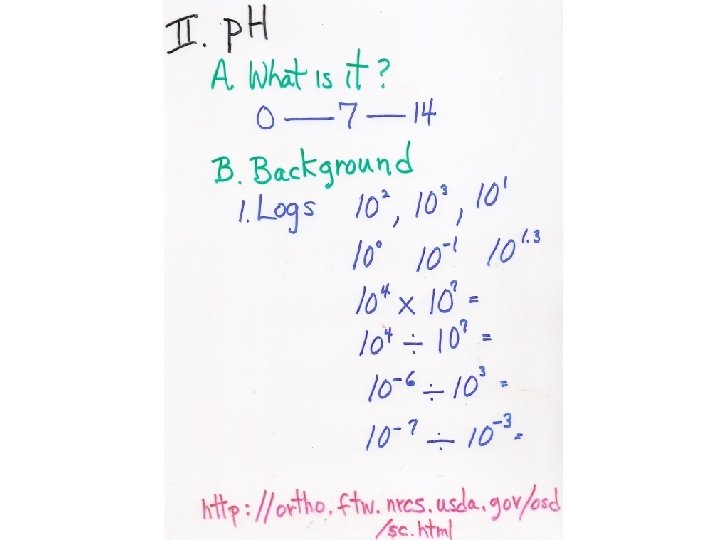 II. pH
A. What is it?
0 — 7 — 14
B. Background
1. Logs 10², 10³, 10¹
10⁰ 10⁻¹ 10^1.3
10⁴ × 10⁷ =
10⁴ ÷ 10⁷ =
10⁻⁶ ÷ 10³ =
10⁻⁷ ÷ 10⁻³ =
http://ortho.ftw.nrcs.usda.gov/osd
/sc.html